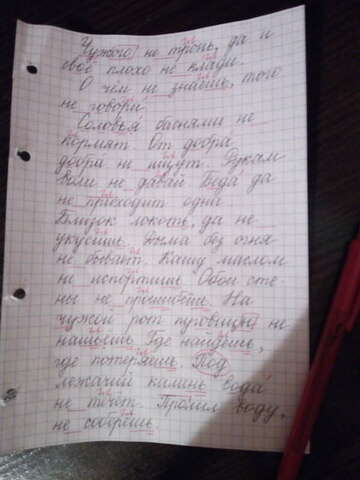 Чужого не тронь, да и
своё плохо не клади.
О чем не знаешь, того
не говори.
Соловья баснями не
кормят. От добра
добра не ищут. Рукам
воли не давай. Беда да
не приходит одна
Близок локоть, да не
укусишь. Дыма без огня
не бывает. Кашу маслом
не испортишь. Обои сте
ны не прошибёшь. На
чужой рот пуговицы не
нашьёшь. Где найдёшь,
где потеряешь. Под
лежачий камень вода
не течёт. Пролил воду,
не соберёшь.